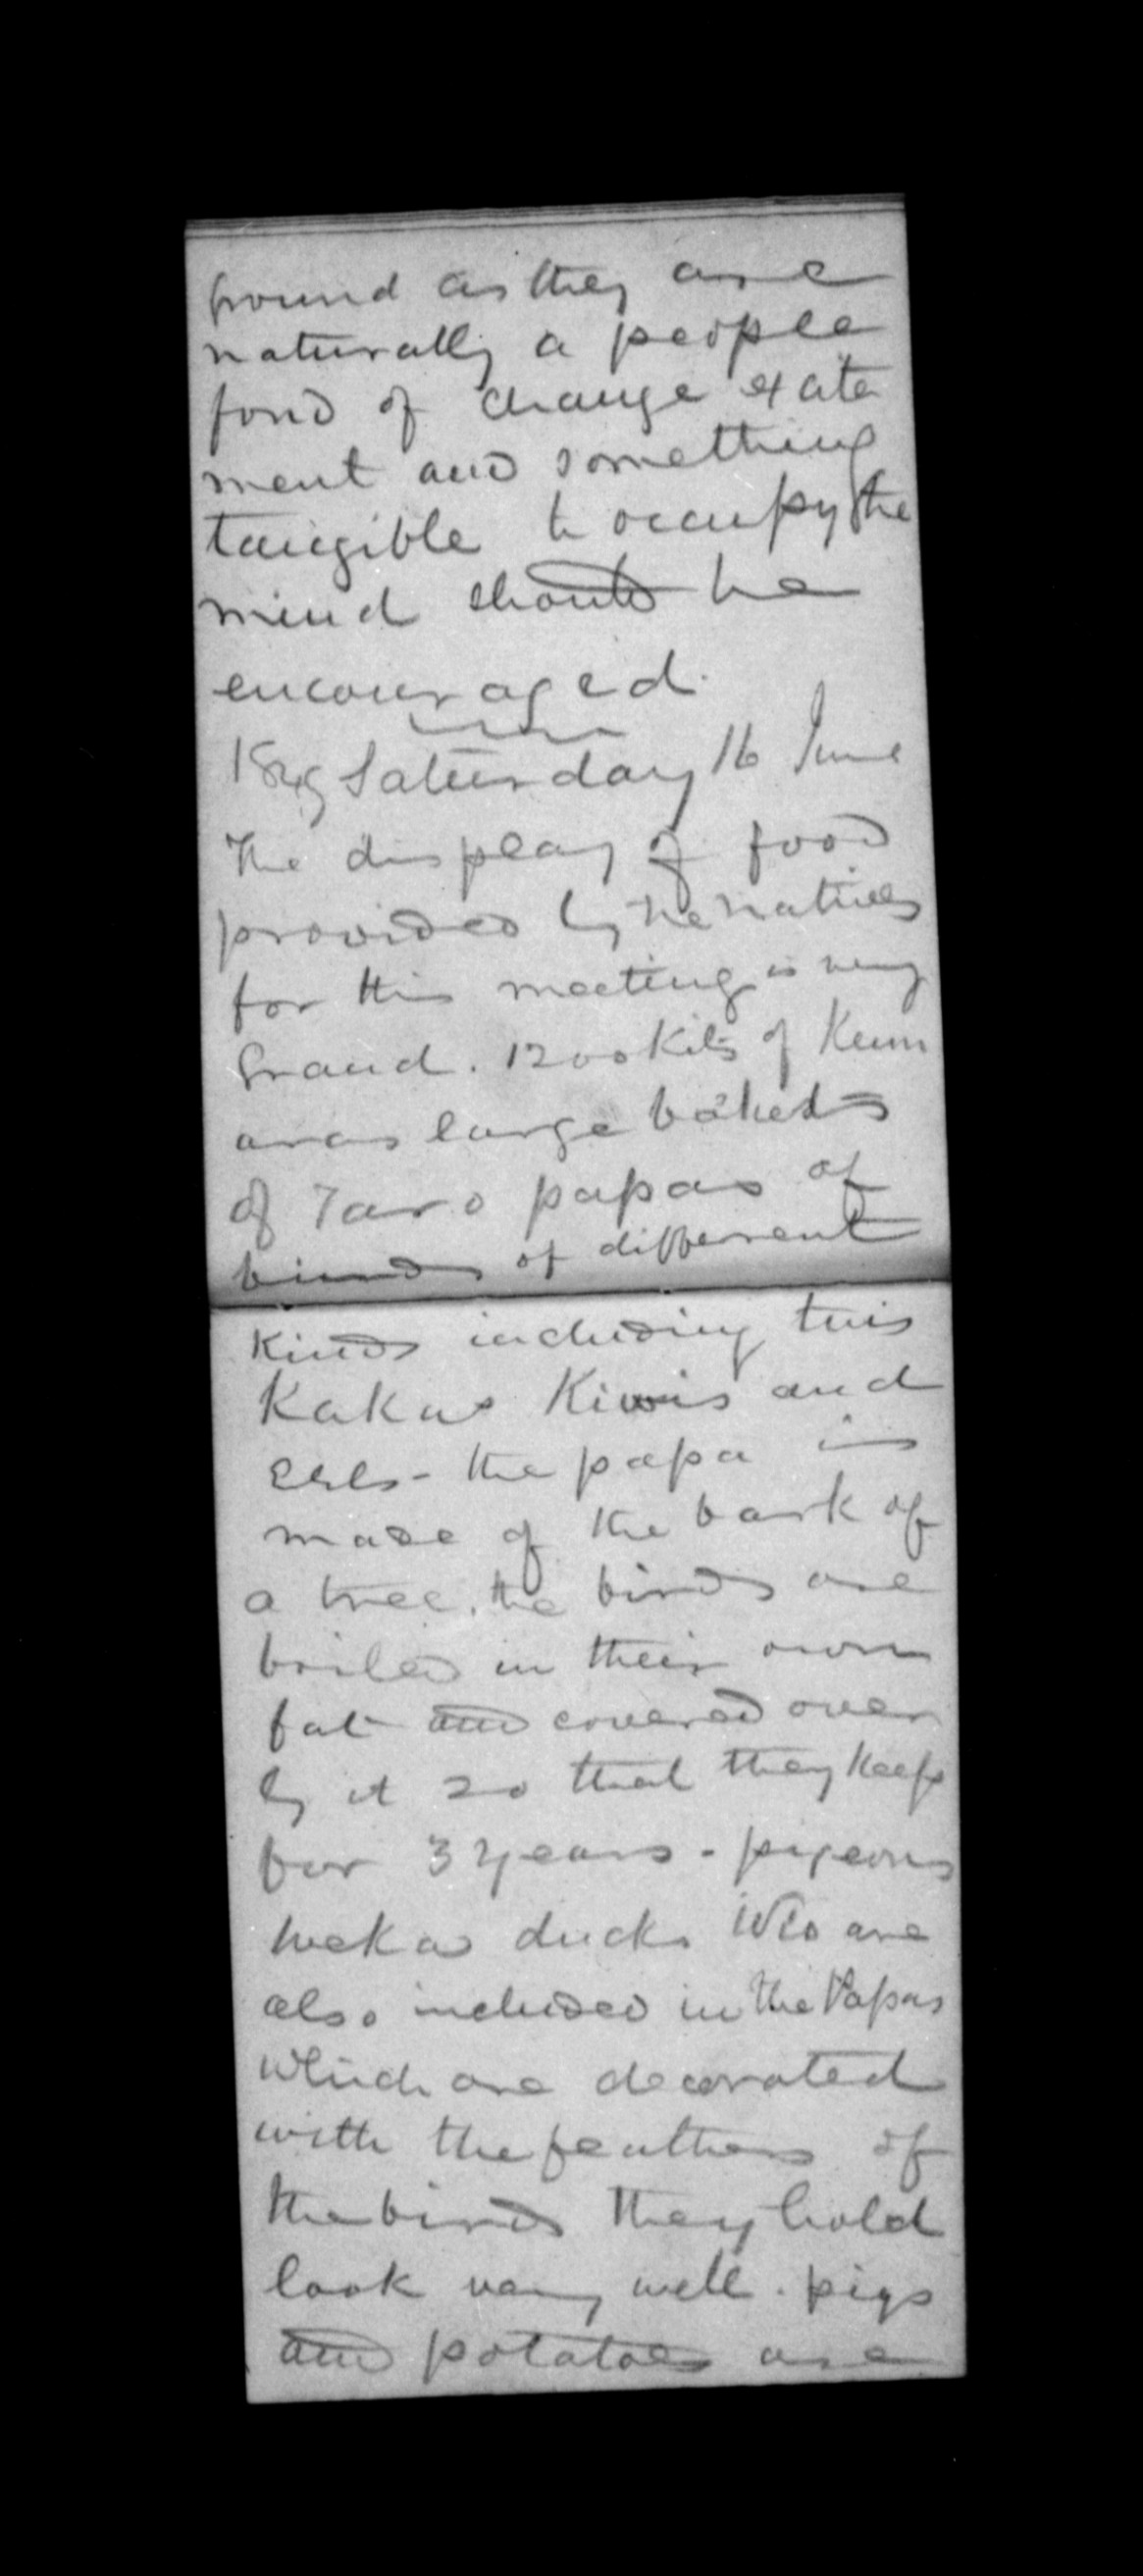 found as they are
naturally a people
fond of change excite
ment and something
tangible to occupy the
mind should be
encouraged.
1849 Saturday 16 June
The display of food
provided by the natives
for this meeting is very
Grand. 1200 Kits of Kum
aras large baskets
of Taro papas of
birds of different
Kinds including tuis
Kakas Kiwis and
eels - the papa is
made of the bark of
a tree. the birds are
boiled in their own
fat and covered over
by it so that they keep
for 3 years - pigeons
weka ducks Wio are
also included in the Papas
which are decorated
with the feathers of
the birds they hold
look very well. pigs
and potatoes are